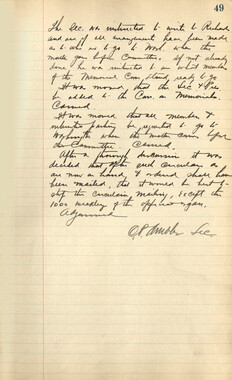 49
The Sec. was instructed to write to Richard
and see if all arrangements have been made
as to who is to go to Wash. when the
matter is before Committee. If not already
done he was instructed to
of the Memorial Com. ready to go
It was moved that the Sec & Pres
be added to the Com. on Memorials
Carried
It was moved that all members &
interested parties be requested to go to
Washington when the matter comes before
the Committee. Carried.
After a thorough discussion it was
decided that after such circulars as
are now on hand, & ordered shall have
been mailed, that it would be best to
stop the circulars mailing, except the
1000 weekly of the official organ.
Adjourned
Sec.